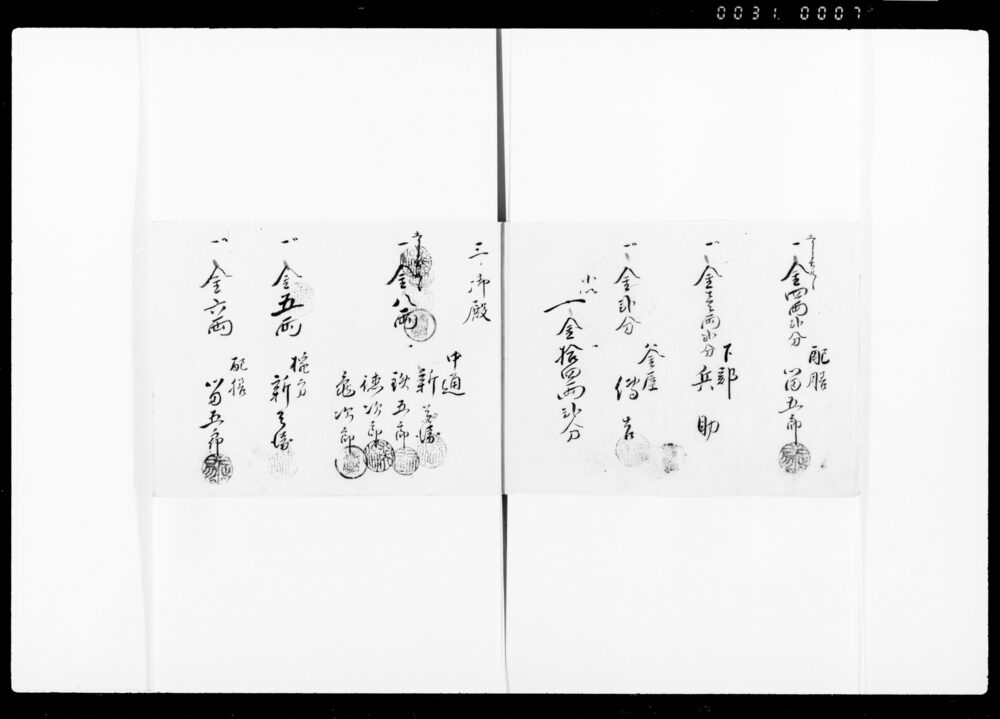 0031 0007
一金四両弐分
配膳
留五郎
〃金壱両弐分
下部
兵助
〃金弐分
釜屋
傳吉
小以
一金拾四両弐分
三御殿
一金八両
中通
新
鉄五郎
徳次郎
亀次郎
〃金五両
新
〃金六両
配膳
留五郎